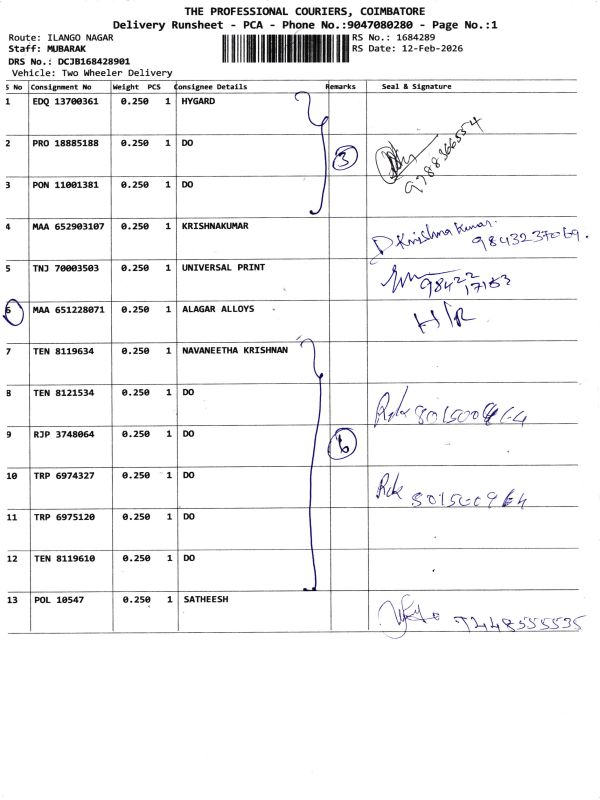 THE PROFESSIONAL COURIERS, COIMBATORE
Delivery Runsheet - PCA - Phone No.:9047080280 - Page No.:1
Route: ILANGO NAGAR RS No.: 1684289
Staff: MUBARAK RS Date: 12-Feb-2026
DRS No.: DCJB168428901
Vehicle: Two Wheeler Delivery
S No Consignment No Weight PCS Consignee Details Remarks Seal & Signature
1 EDQ 13700361 0.250 1 HYGARD
2 PRO 18885188 0.250 1 DO 3
3 PON 11001381 0.250 1 DO
4 MAA 652903107 0.250 1 KRISHNAKUMAR D Krishna Kumar.
5 TNJ 70003503 0.250 1 UNIVERSAL PRINT 98422
6 MAA 651228071 0.250 1 ALAGAR ALLOYS H/R
7 TEN 8119634 0.250 1 NAVANEETHA KRISHNAN
8 TEN 8121534 0.250 1 DO
9 RJP 3748064 0.250 1 DO 6
10 TRP 6974327 0.250 1 DO
11 TRP 6975120 0.250 1 DO
12 TEN 8119610 0.250 1 DO
13 POL 10547 0.250 1 SATHEESH